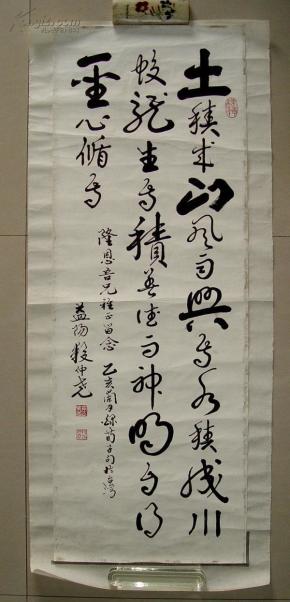 土積成山風雨興焉水積成川
蛟龍生焉積善成德而神明自得
聖心循焉
隆恩吾兄雅正留念 乙亥 錄荀子句於
益陽 仲堯